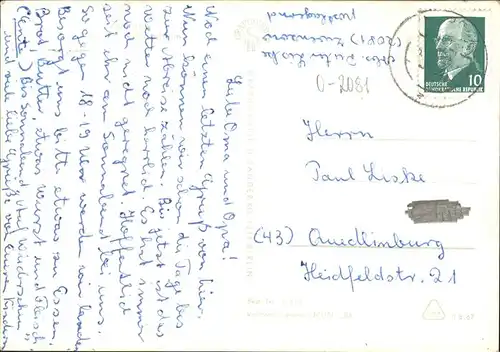 Liebe Oma und Opa!
Noch einen letzten Gruß von hier.
Nun können wir schon die Tage bis
zur Abreise zählen. Bis jetzt ist das
Wetter noch herrlich. Es hat immer
noch nicht geregnet. Hoffentlich
seit ihr am Sonnabend bei uns.
So gegen 18-19 Uhr werden wir landen
Besorgt uns bitte etwas zu Essen.
Brot, Butter, etwas Wurst und Fleisch
Bis Sonnabend auf Wiedersehen
und viele liebe Grüße von Euren Kindern
Abs. Peter Liske
(2081)
postlagernd
0-2081
DEUTSCHE
DEMOKRATISCHE REPUBLIK
10
Herrn
Paul Liske
(43) Quedlinburg
Heidfeldstr. 21